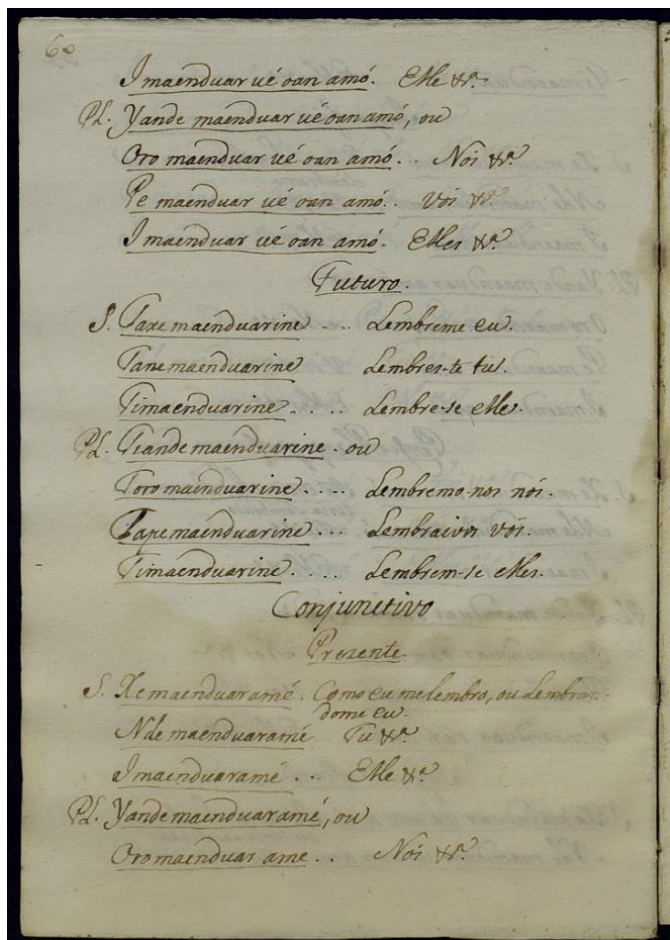 60
Imaenduar ué oan amó. Elle &ª.
Pl. Yande maenduar ué oan amó, ou
Oro maenduar ué oan amó. . Nós &ª.
Pe maenduar ué oan amó. . Vós &ª.
Imaenduar ué oan amó. Elles &ª.
Futuro.
S. Taxe maenduarine . . . . Lembreme eu.
Tane maenduarine Lembres-te tu.
Timaenduarine. . . . . Lembre-se elle.
Pl. Tiande maenduarine . ou
Toro mainduarine. . . . Lembremo-nos nós.
Tape maenduarine. . . . Lembraivos vós.
Timaenduarine. . . . Lembrem-se elles.
Conjunctivo
Prezente.
S. Xe maenduaramé. Como eu me lembro, ou Lembran-
dome eu.
Nde maenduaramé Tu &ª.
Imaenduaramé . . Elle &ª.
Pl. Yande maenduaramé, ou
Oro maenduar ame . . Nós &ª.